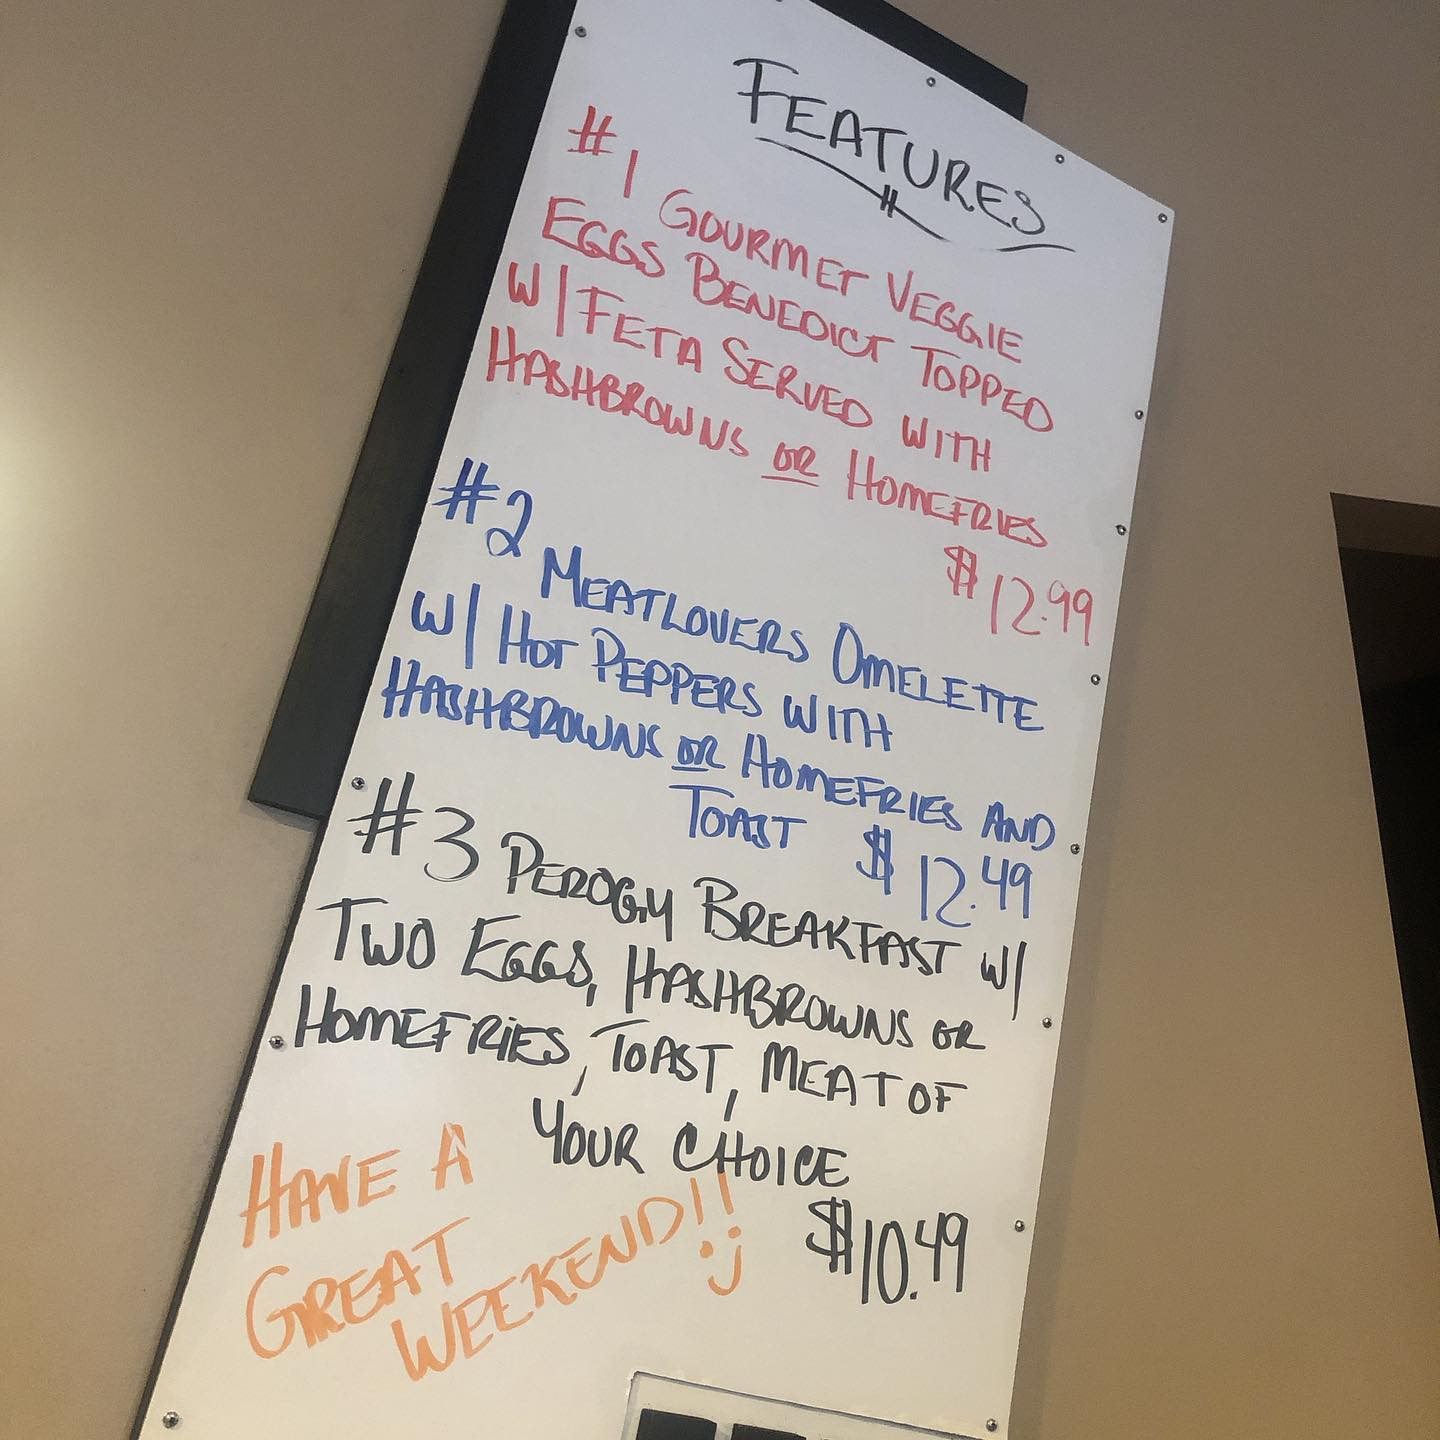 FEATURES
#1 GOURMET VEGGIE
EGGS BENEDICT TOPPED
W/ FETA SERVED WITH
HASHBROWNS OR HOMEFRIES
$12.99
#2 MEATLOVERS OMELETTE
W/ HOT PEPPERS WITH
HASHBROWNS OR HOMEFRIES AND
TOAST $12.49
#3 PEROGY BREAKFAST W/
TWO EGGS, HASHBROWNS OR
HOMEFRIES, TOAST, MEAT OF
YOUR CHOICE
$10.49
HAVE A
GREAT
WEEKEND!! :)